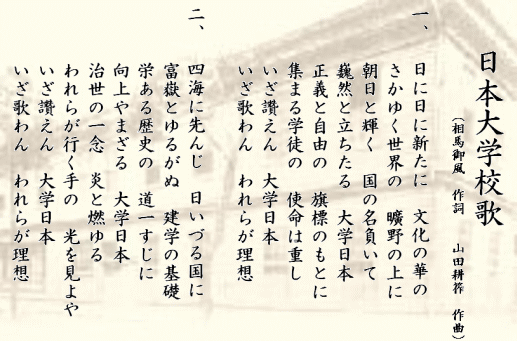 日本大学校歌
（相馬御風 作詞 山田耕筰 作曲）
一、
日に日に新たに 文化の華の
さかゆく世界の 曠野の上に
朝日と輝く 国の名負いて
巍然と立ちたる 大学日本
正義と自由の 旗標のもとに
集まる学徒の 使命は重し
いざ讃えん 大学日本
いざ歌わん われらが理想
二、
四海に先んじ 日いづる国に
富嶽とゆるがぬ 建学の基礎
栄ある歴史の 道一すじに
向上やまざる 大学日本
治世の一念 炎と燃ゆる
われらが行く手の 光を見よや
いざ讃えん 大学日本
いざ歌わん われらが理想